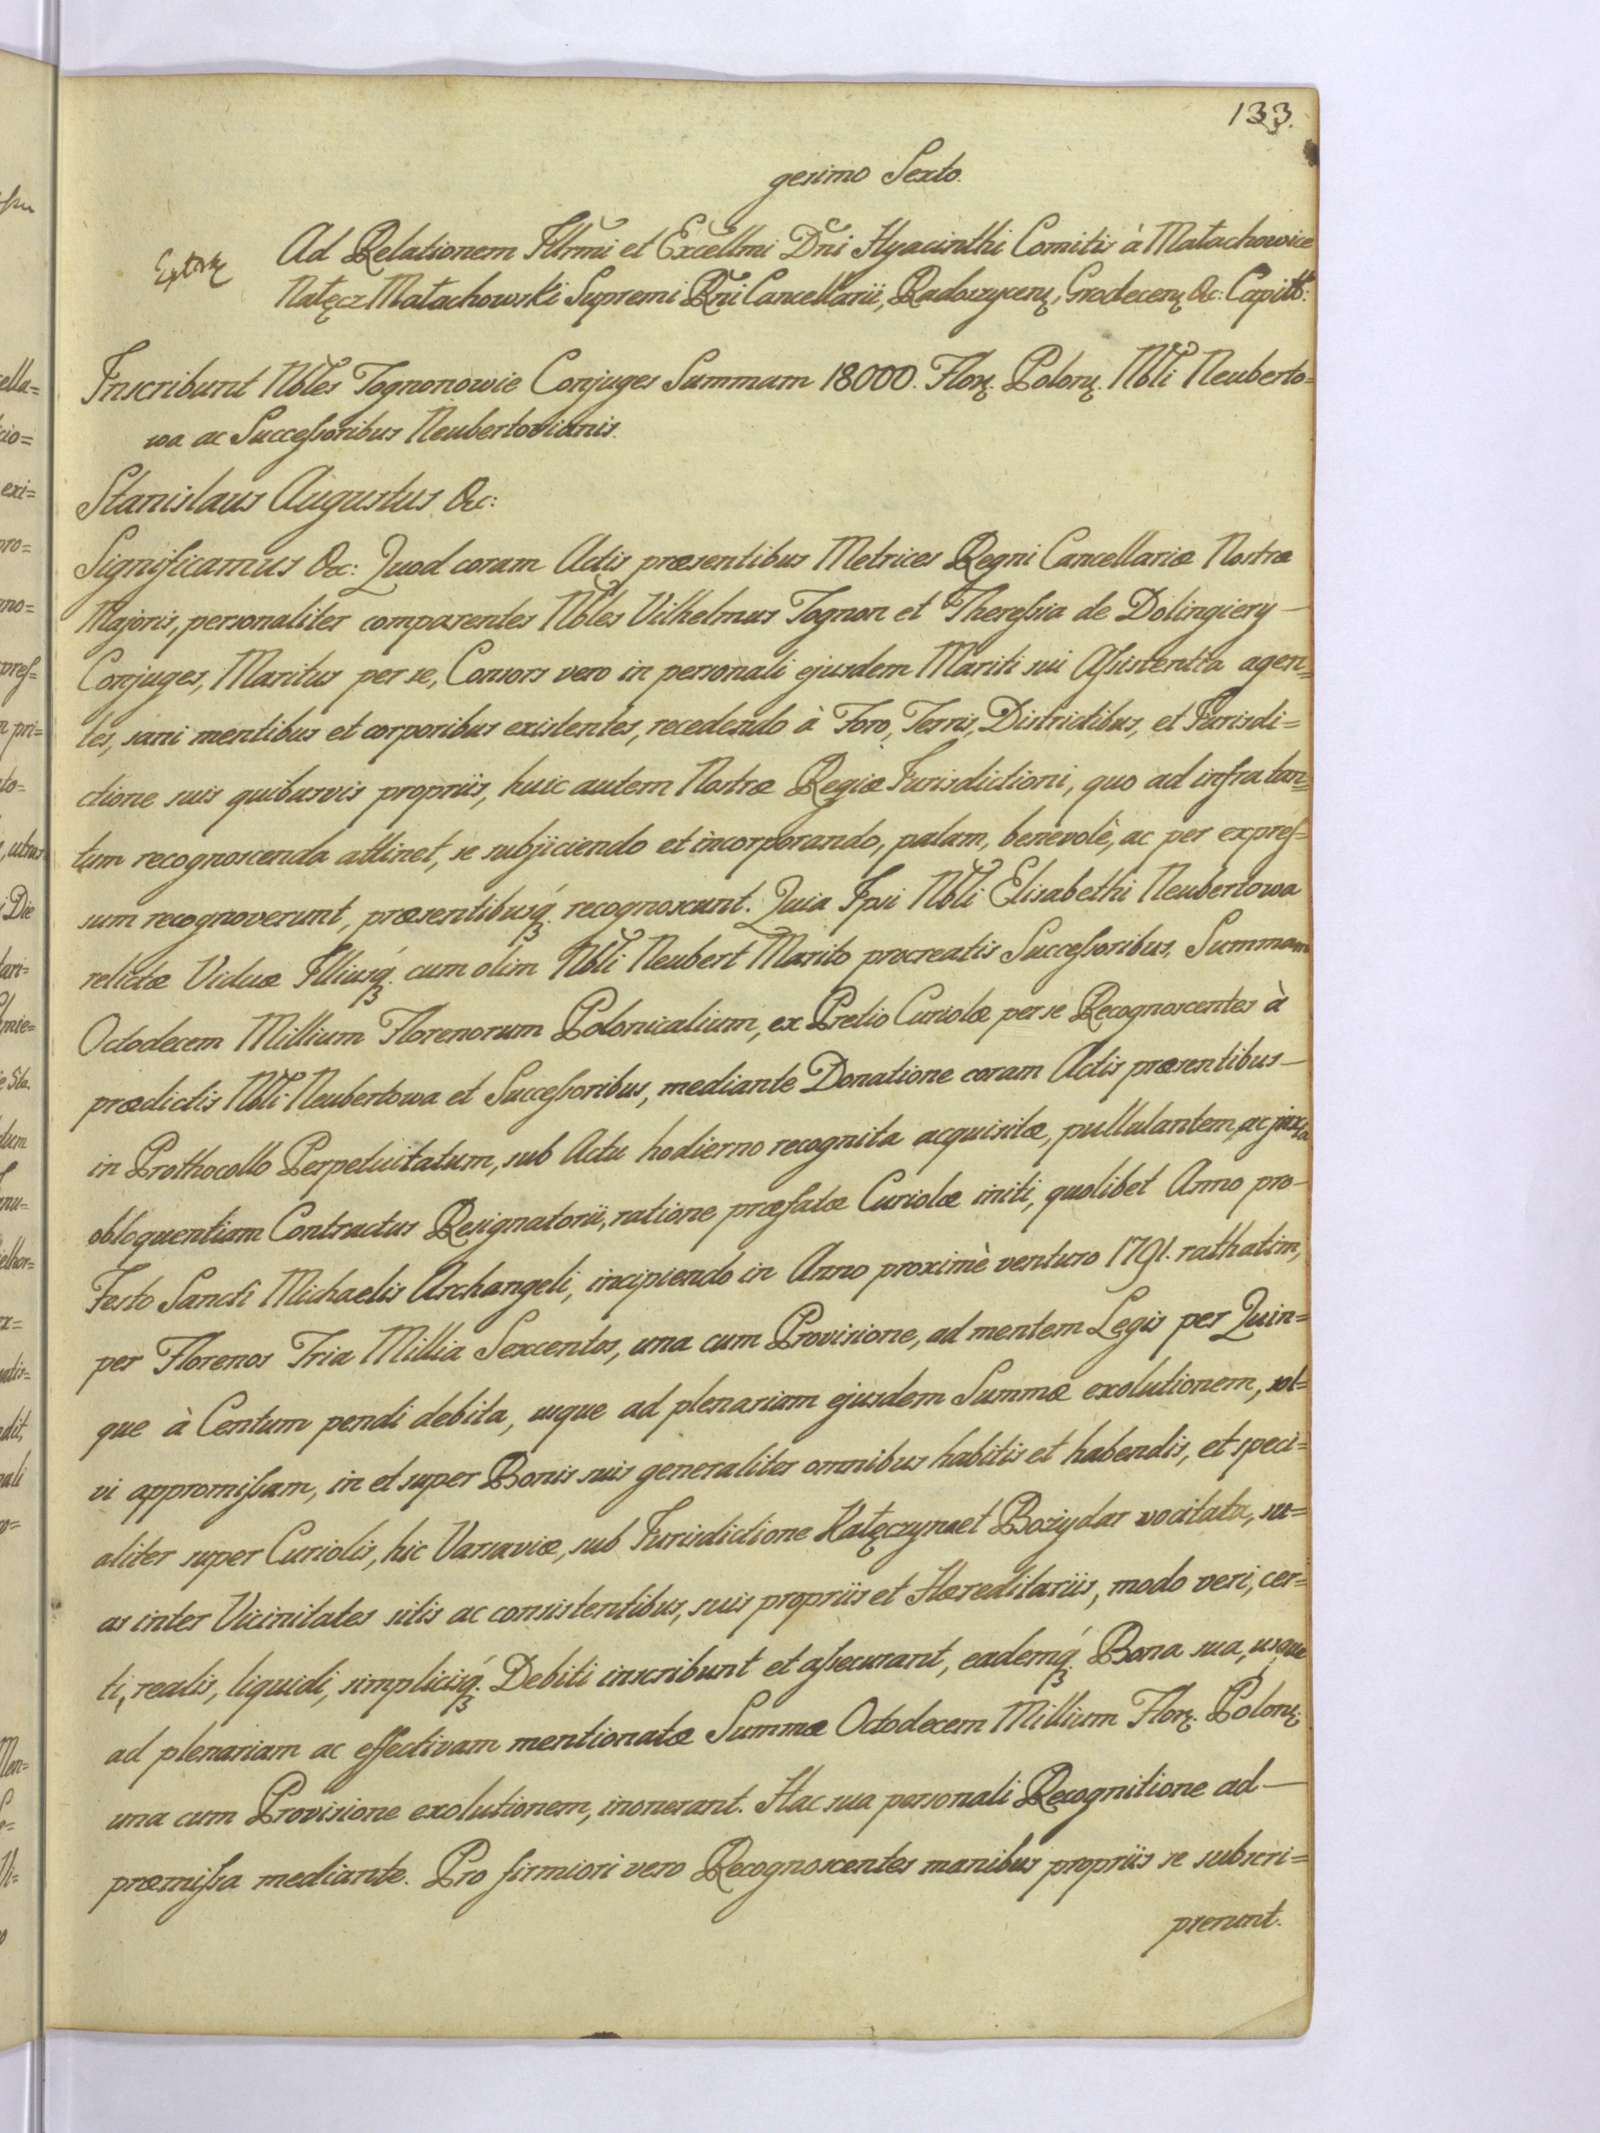 133.
gesimo Sexto.
Ad Relationem Illrmi et Excellmi Dñi Hyacinthi Comitis à Małachowice
Nałęcz Małachowski Supremi Rñi Cancellarii, Radoszyceñ, Grodeceñ &c: Capitt:
Inscribunt Nbles Tognonowie Conjuges Summam 18000. Flor: Polon: Nbli Neuberto=
wa ac Successoribus Neubertovianis.
Stanislaus Augustus &c:
Significamus &c: Quod coram Actis præsentibus Metrices Regni Cancellariæ Nostræ
Majoris, personaliter comparentes Nbles Vilhelmus Tognon et Theressia de Dolingiery
Conjuges, Maritus per se, Consors vero in personali ejusdem Mariti sui Assistentia agen=
tes, sani mentibus et corporibus existentes, recedendo à Foro, Terris, Districtibus, et Jurisdi=
ctione suis quibusvis propriis, huic autem Nostræ Regiæ Jurisdictioni, quo ad infra tan=
tum recognoscenda attinet, se subjiciendo et incorporando, palam, benevolè, ac per expres=
sum recognoverunt, præsentibusq́ recognoscunt. Quia Ipsi Nbli Elisabethi Neubertowa
relictæ Viduæ Illiusq́ cum olim Nbli Neubert Marito procreatis Successoribus, Summam
Octodecem Millium Florenorum Polonicalium, ex Pretio Curiolæ per se Recognoscentes à
prædictis Nbli Neubertowa et Successoribus, mediante Donatione coram Actis præsentibus
in Prothocollo Perpetuitatum, sub Actu hodierno recognita acquisitæ, pullulantem, ac juxta
obloquentiam Contractus Resignatorii, ratione præfatæ Curiolæ initi, quolibet Anno pro
Festo Sancti Michaelis Archangeli, incipiendo in Anno proximè venturo 1791. rathatim,
per Florenos Tria Millia Sexcentos, una cum Provisione, ad mentem Legis per Quin=
que à Centum pendi debita, usque ad plenariam ejusdem Summæ exolutionem, sol=
vi appromissam, in et super Bonis suis generaliter omnibus habitis et habendis, et speci=
aliter super Curiolis, hic Varsaviæ, sub Jurisdictione Kałęczyna et Bożydar vocitata, su=
as inter Vicinitates sitis ac consistentibus, suis propriis et Hæreditariis, modo veri, cer=
ti, realis, liquidi, simplicisq́ Debiti inscribunt et assecurant, eademq́ Bona sua, usque
ad plenariam ac effectivam mentionatæ Summæ Octodecem Millium Flor: Polon:
una cum Provisione exolutionem, inonerant. Hac sua personali Recognitione ad
præmissa mediante. Pro firmiori vero Recognoscentes manibus propriis se subscri=
pserunt.